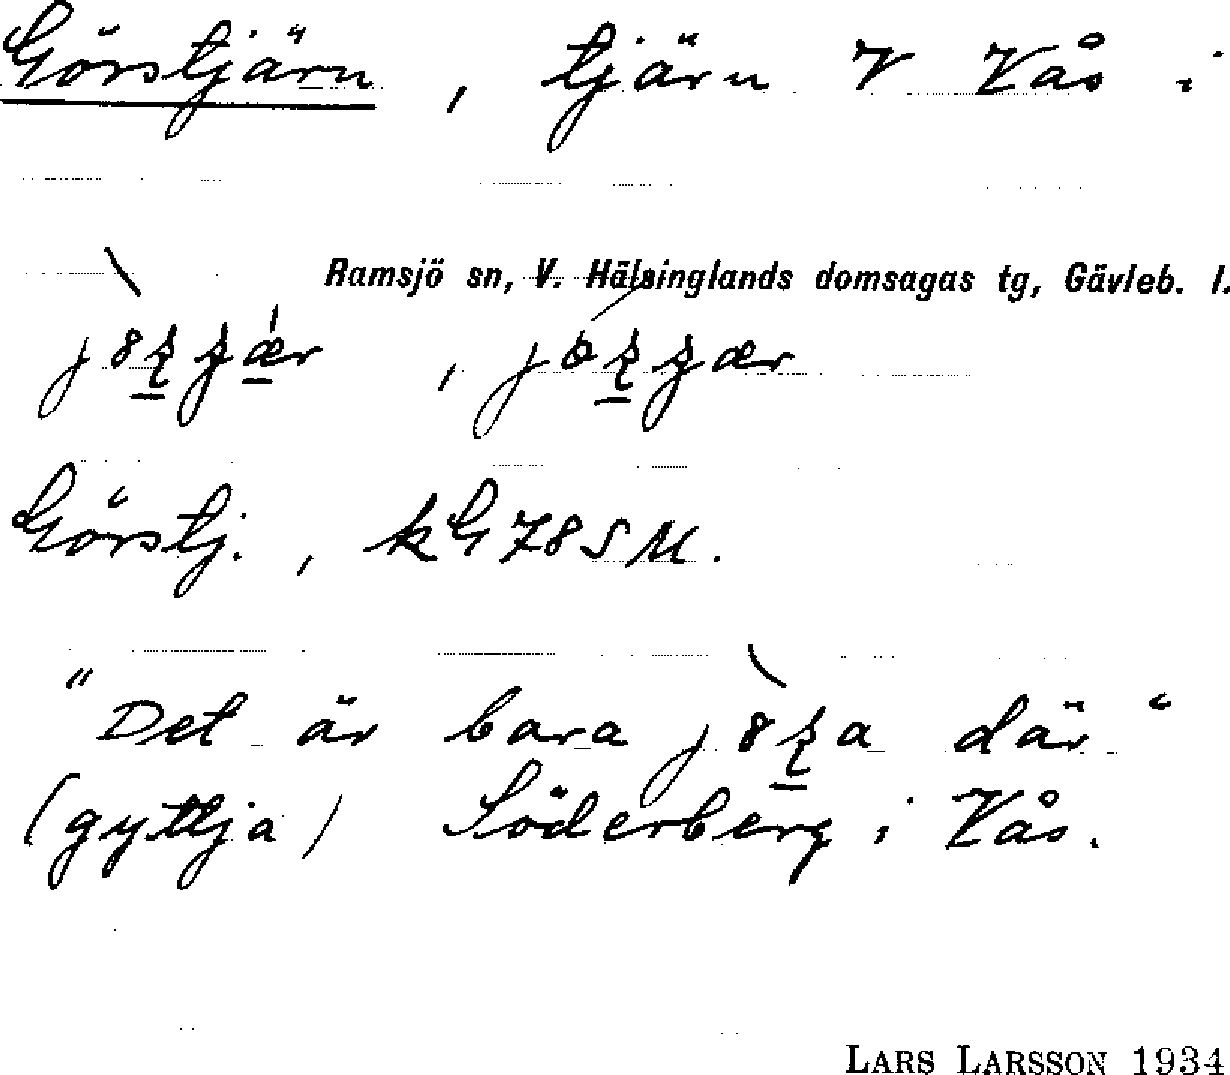 Görstjärn, tjärn V Vås i
Ramsjö sn, V. Hälsinglands domsagas tg, Gävleb. l.
Görstj., kG 78 SM.
"Det är bara där"
(gyttja) Söderberg i Vås.
LARS LARSSON 1934